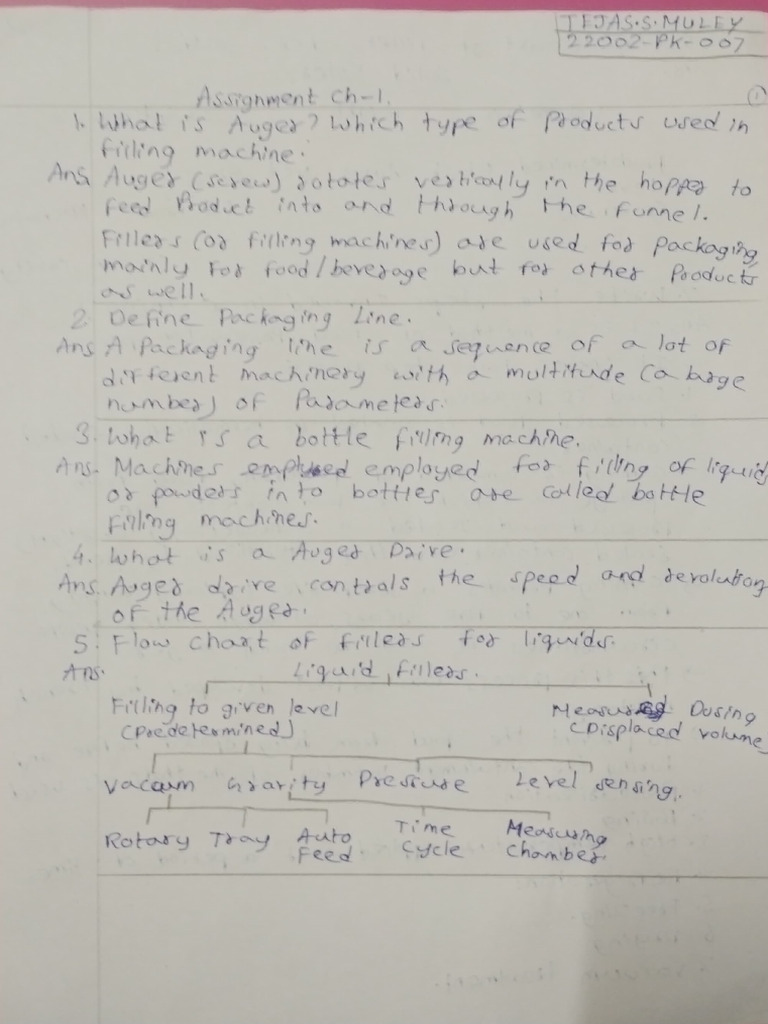 TEJAS.S.MULEY
22002-PK-007
Assignment Ch-1.
1
1. What is Auger? Which type of Products used in
filling machine.
Ans Auger (screw) rotates vertically in the hopper to
feed Product into and through the funnel.
Fillers (or filling machines) are used for packaging,
mainly For food/beverage but for other Products
as well.
2. Define Packaging Line.
Ans A Packaging line is a sequence of a lot of
different machinery with a multitude (a large
number) of Parameters.
3. What is a bottle filling machine.
Ans. Machines employed for filling of liquid
or powders in to bottles are called bottle
filling machines.
4. What is a Auger Drive.
Ans. Auger drive controls the speed and revolution
of the Auger.
5. Flow chart of fillers for liquids.
Ans. Liquid fillers.
Filling to given level Measured Dosing
(Predetermined) (Displaced volume)
Vacuum Gravity Pressure Level sensing.
Rotary Tray Auto Feed Time Cycle Measuring Chamber